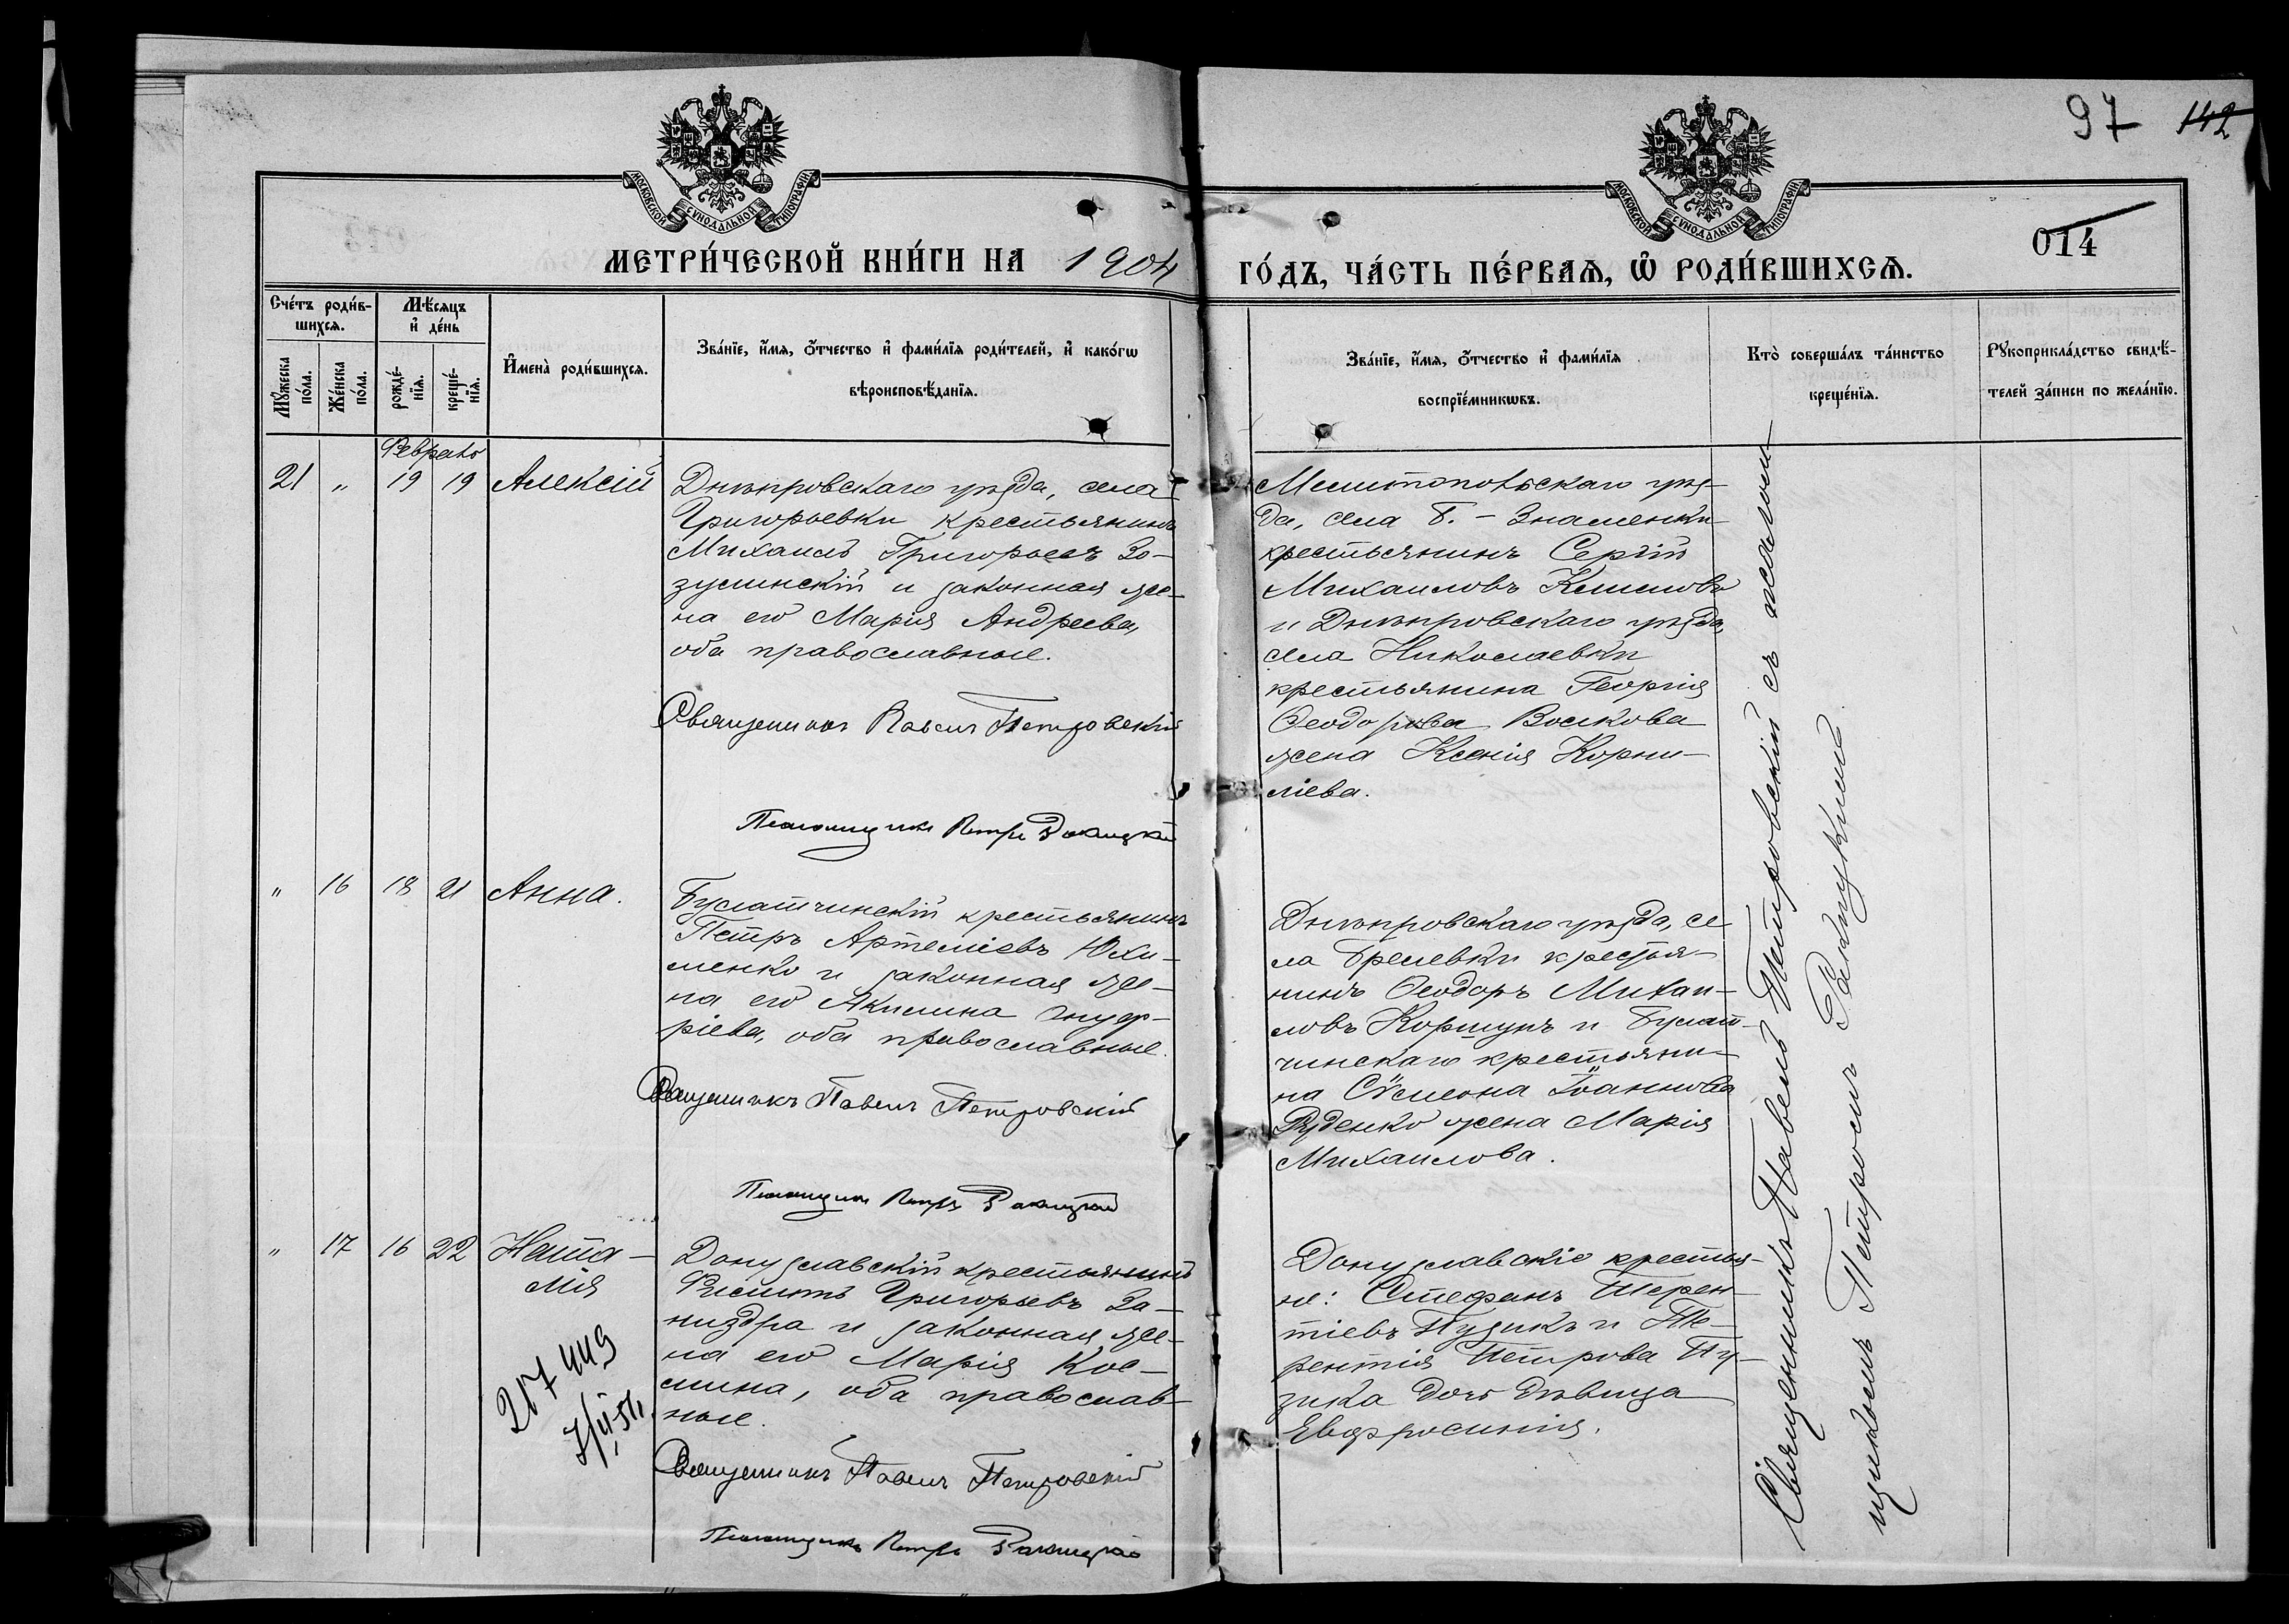 97 142
014
МОСКОВСКОЙ СУНОДАЛЬНОЙ ТИПОГРАФІИ
МОСКОВСКОЙ СУНОДАЛЬНОЙ ТИПОГРАФІИ
МЕТРИ́ЧЕСКОЙ КНИ́ГИ НА 1904 ГО́ДЪ, ЧА́СТЬ ПЕ́РВАѦ, Ѡ҆ РОДИ́ВШИХСѦ.
Сче́тъ роди́в-
шихсѧ.
Мꙋ́жеска по́ла.
Же́нска по́ла.
Мѣ́сѧцъ
и҆ де́нь
рожде́-
нїѧ.
креще́-
нїѧ.
И҆мена̀ роди́вшихсѧ.
Зва́нїе, и҆́мѧ, ѻ҆́тчество и҆ фами́лїѧ роди́телей, и҆ како́гѡ
вѣроисповѣ́данїѧ.
Зва́нїе, и҆́мѧ, ѻ҆́тчество и҆ фами́лїѧ
воспрїе́мникѡвъ.
Кто̀ соверша́лъ та́инство
креще́нїѧ.
Рꙋкоприкла́дство свидѣ́-
телей за́писи по жела́нїю.
Февраль
21 " 19 19 Алексій
Днѣпровскаго уѣзда, села
Григорьевки крестьянинъ
Михаилъ Григорьевъ Зо-
зулинскій и законная же-
на его Марія Андреева,
оба православные.
Священникъ Павелъ Петровскій
Псаломщикъ Петръ Ракицкій
Мелитопольскаго уѣз-
да, села Б. - Знаменки
крестьянинъ Сергій
Михаиловъ Климовъ
и Днѣпровскаго уѣзда,
села Николаевки
крестьянина Георгія
Ѳеодорова Волкова
жена Ксенія Корни-
ліева.
" 16 18 21 Анна.
Булатчинскій крестьянинъ
Петръ Артеміевъ Юхи-
менко и законная же-
на его Акилина Онуф-
ріева, оба православные.
Священникъ Павелъ Петровскій
Псаломщикъ Петръ Ракицкій
Днѣпровскаго уѣзда, се
ла Брилевки крестья-
нинъ Ѳеодоръ Михаи-
ловъ Коршунъ и Булат-
чинскаго крестьяни-
на Сѵмеона Іоаннова
Руденко жена Марія
Михаилова.
" 17 16 22 Ната-
лія
217 449
Донузлавскій крестьянинъ
Филиппъ Григорьевъ За-
низдра и законная же-
на его Марія Кос-
мина, оба православ-
ные.
Священникъ Павелъ Петровскій
Псаломщикъ Петръ Ракицкій
Донузлавскіе крестья-
не: Стефанъ Терен-
тіевъ Пузикъ и Те-
рентія Петрова Пу-
зика дочь дѣвица
Евфросинія.
Священникъ Павелъ Петровскій съ псалом-
щикомъ Петромъ Ракицкимъ